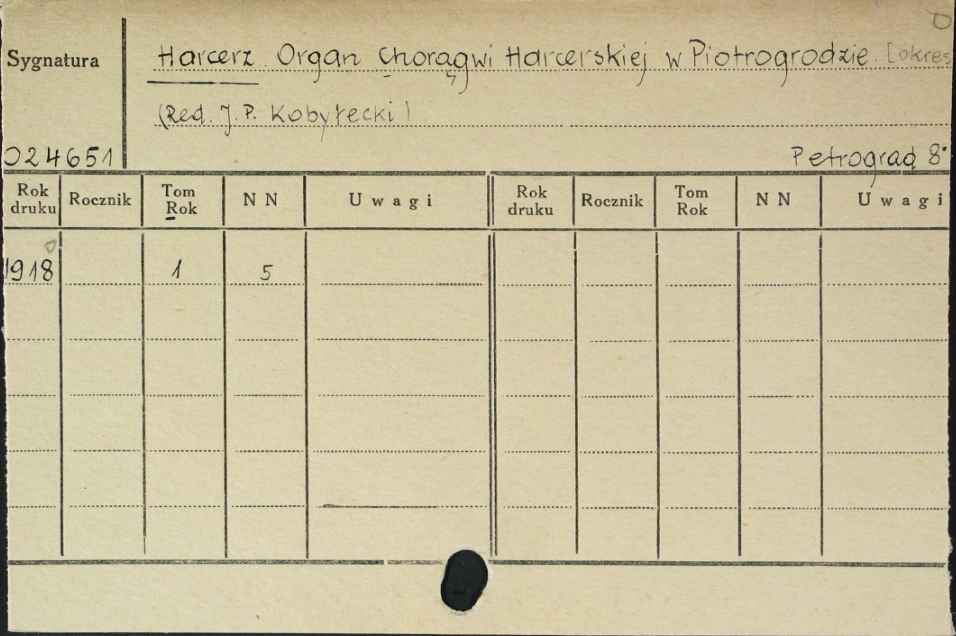 Sygnatura Harcerz. Organ Chorągwi Harcerskiej w Piotrogrodzie. [okres
(Red. J. P. Kobyłecki)
024651 Petrograd 8°
Rok druku Rocznik Tom Rok N N Uwagi Rok druku Rocznik Tom Rok N N Uwagi
1918 1 5